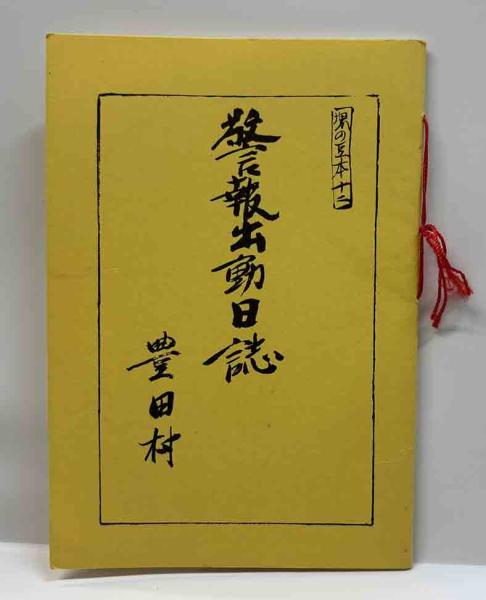 堺の豆本十二
警報出動日誌
豊田村